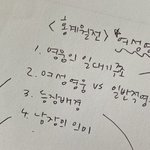 <홍계월전> 여성영
1. 영웅의 일대기구조
2. 여성영웅 vs 일반적영
3. 등장배경
4. 남장의 의미